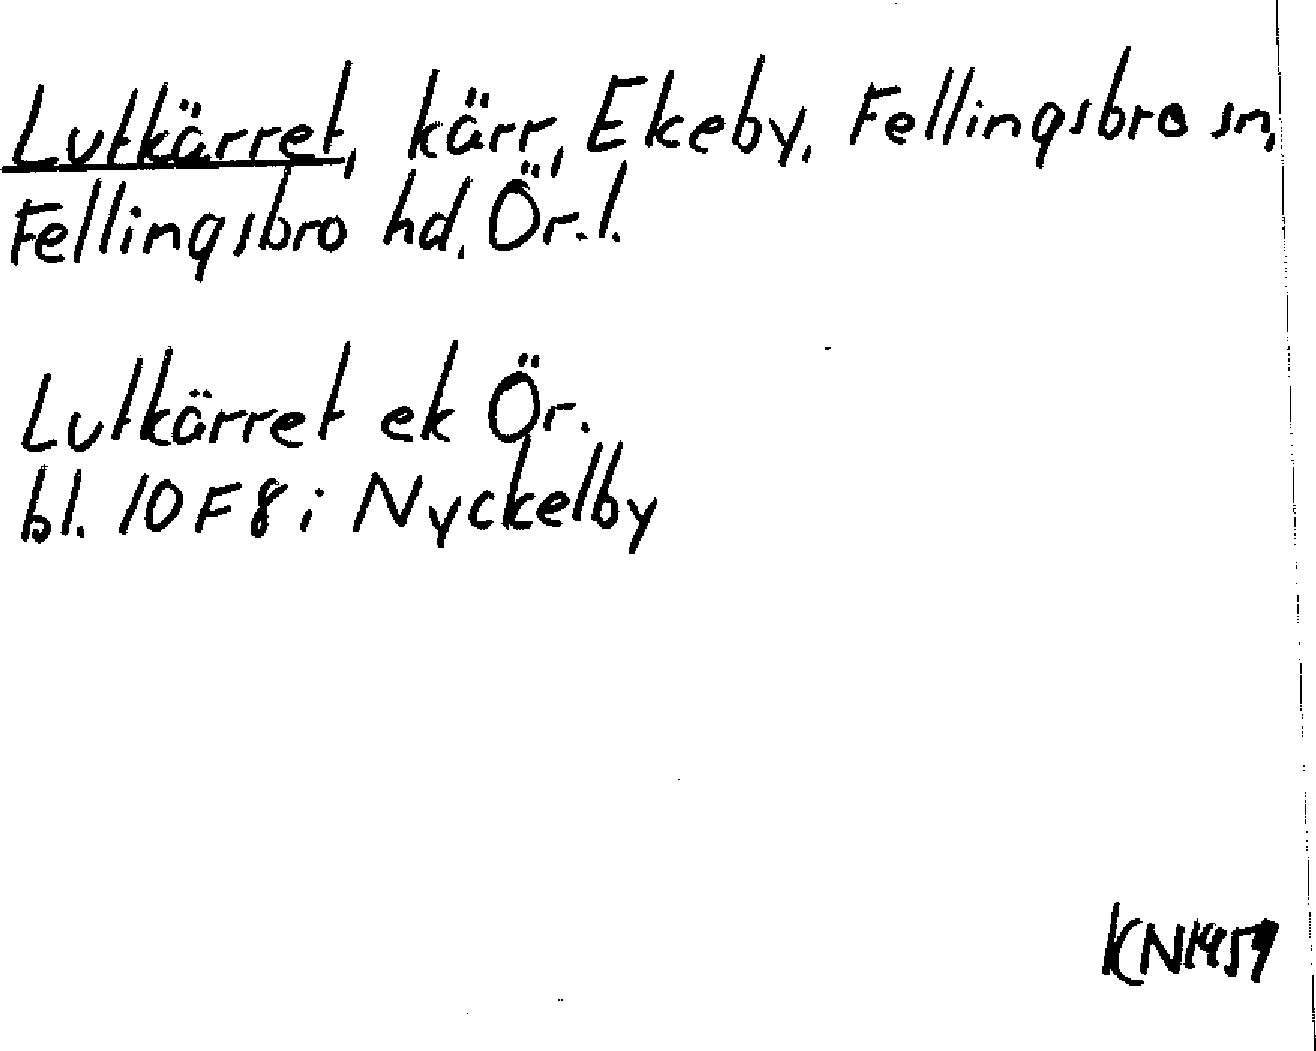 Lutkärret, kärr, Ekeby, Fellingsbro sn,
Fellingsbro hd, Ör. l.
Lutkärret ek Ör.
bl. 10F8i Nyckelby
KN1959